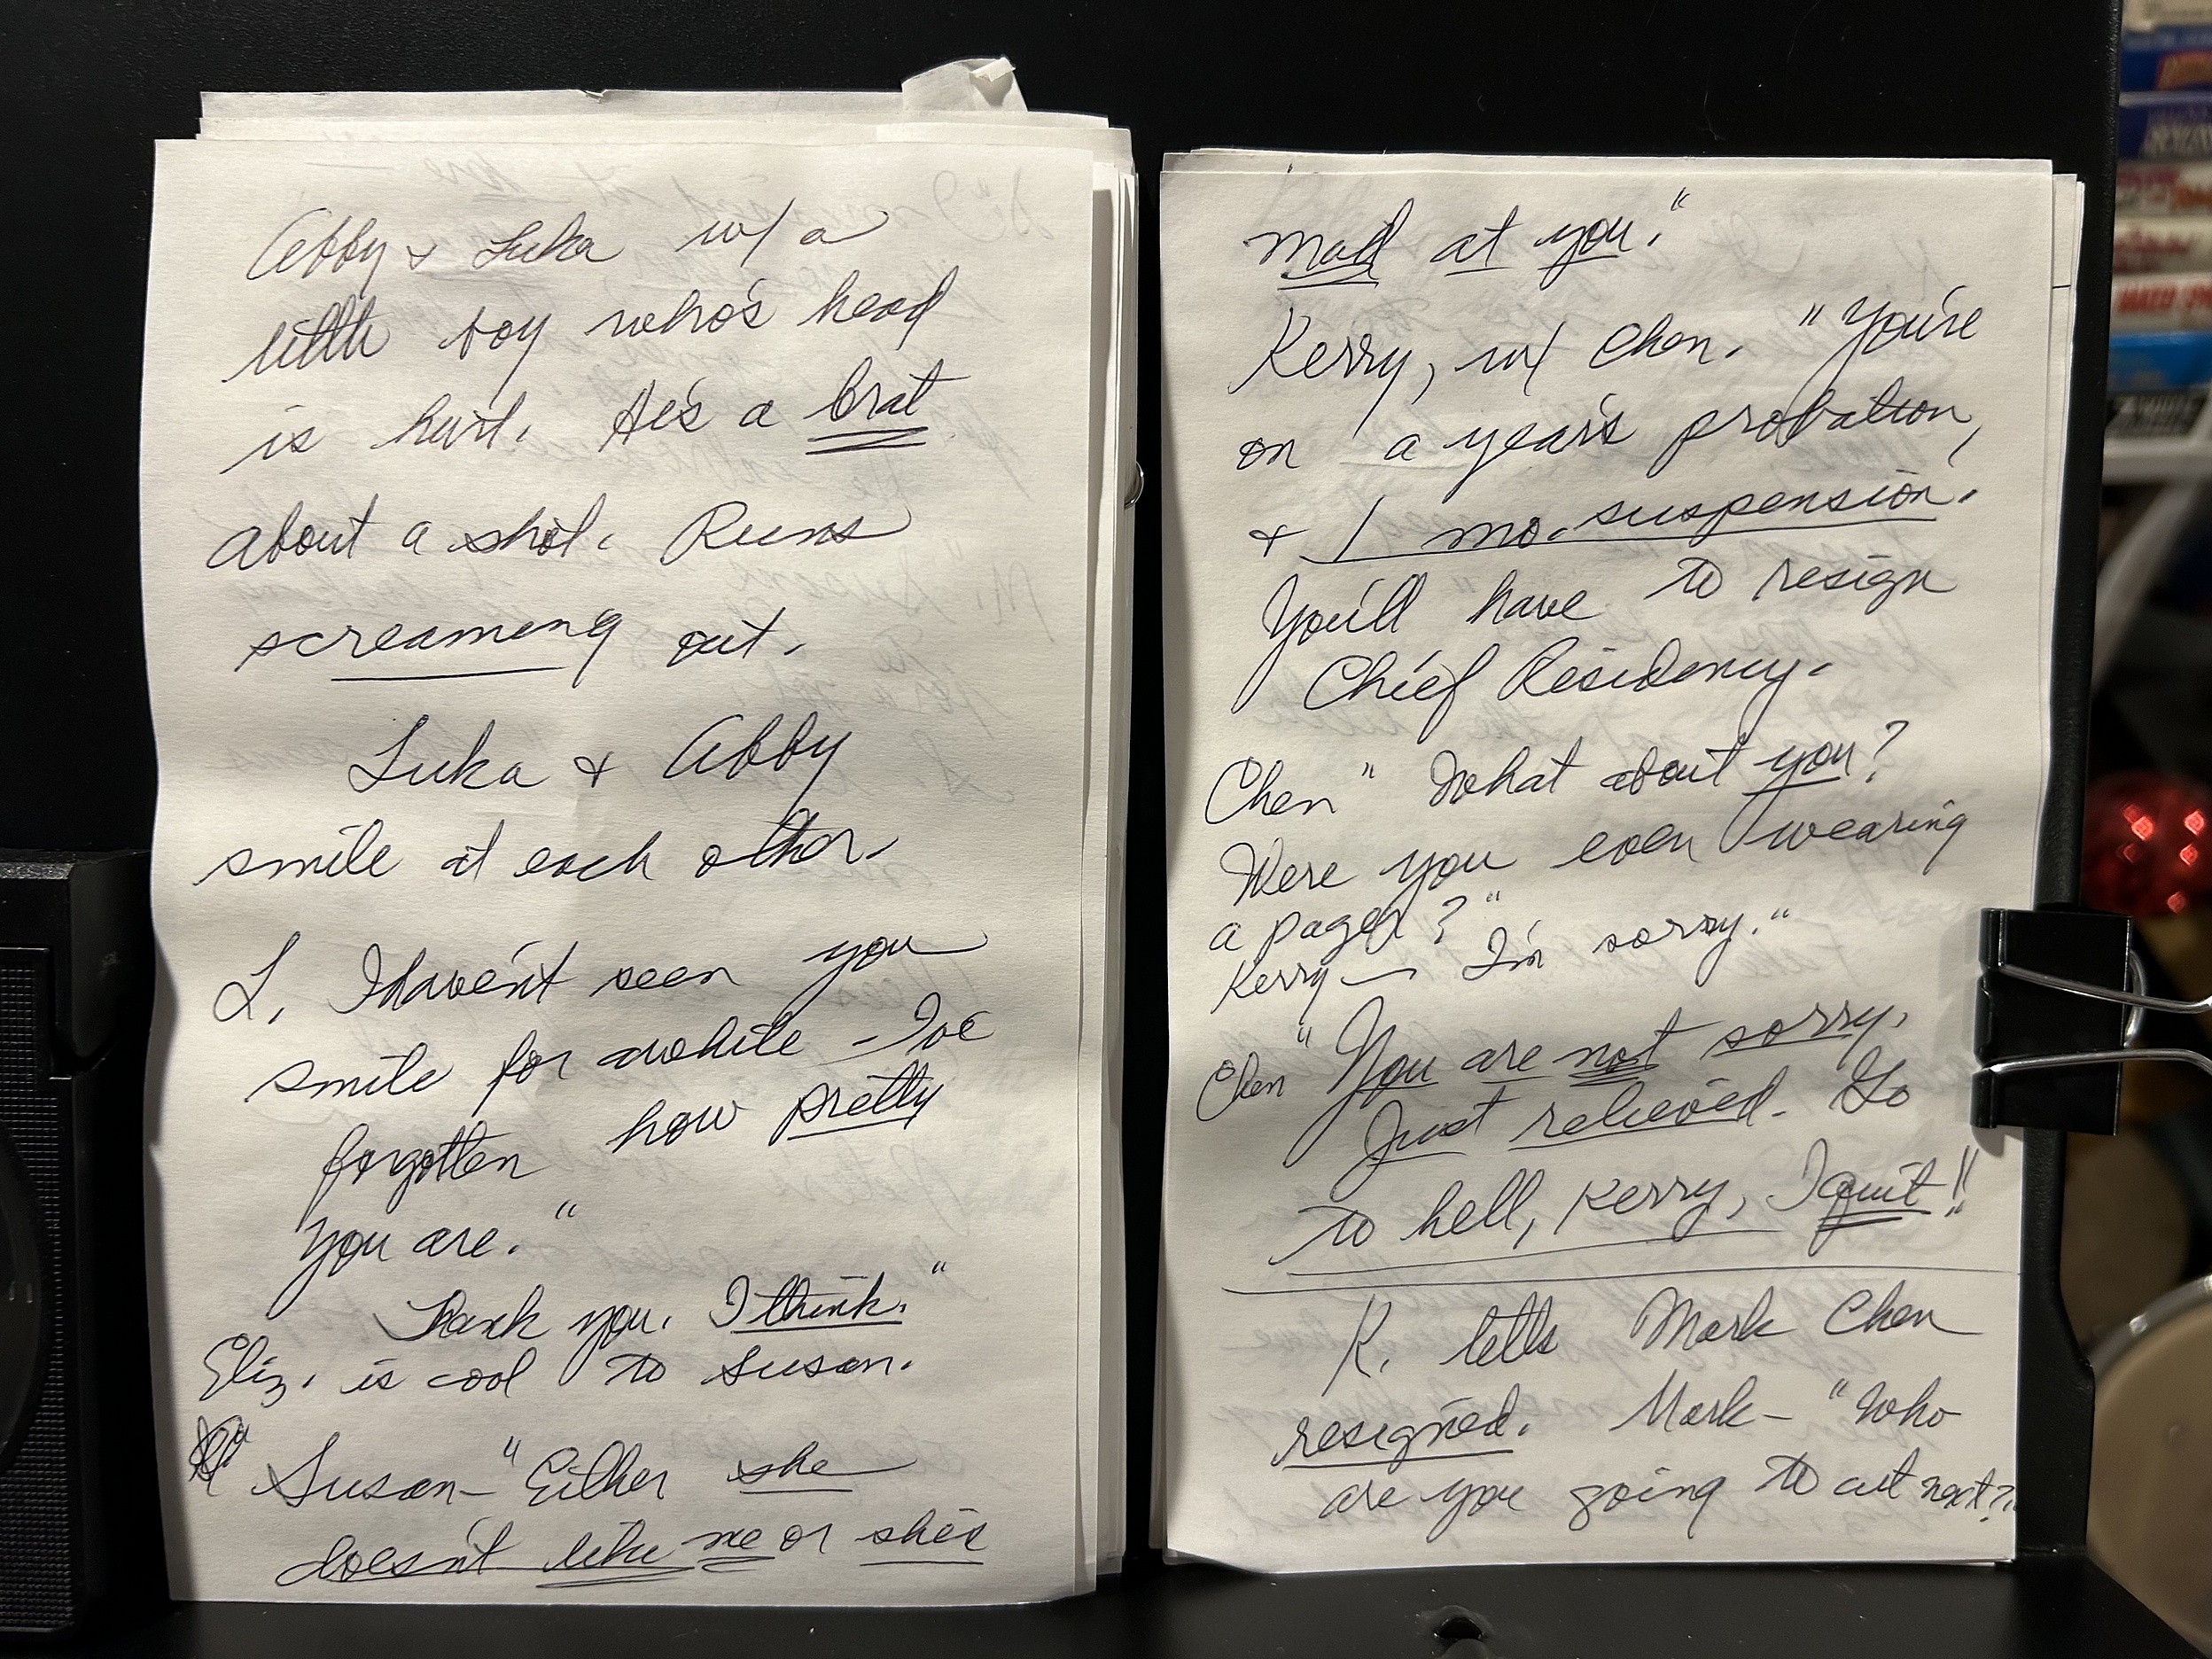 Abby & Luka w/ a
little boy who's head
is hurt. He's a brat
about a shot. Runs
screaming out.
Luka & Abby
smile at each other.
L. I haven't seen you
smile for awhile - I've
forgotten how pretty
you are."
Thank you. I think."
Eliz. is cool to Susan.
Susan - "Either she
doesn't like me or she's
mad at you."
Kerry, w/ Chen. "You're
on a year's probation,
& 1 mo. suspension.
You'll have to resign
Chief Residency.
Chen " What about you?
Were you even wearing
a pager?"
Kerry - I'm sorry."
Chen "You are not sorry,
Just relieved. Go
to hell, Kerry, I quit!!
K. tells Mark Chen
resigned. Mark - "Who
are you going to cut next?"